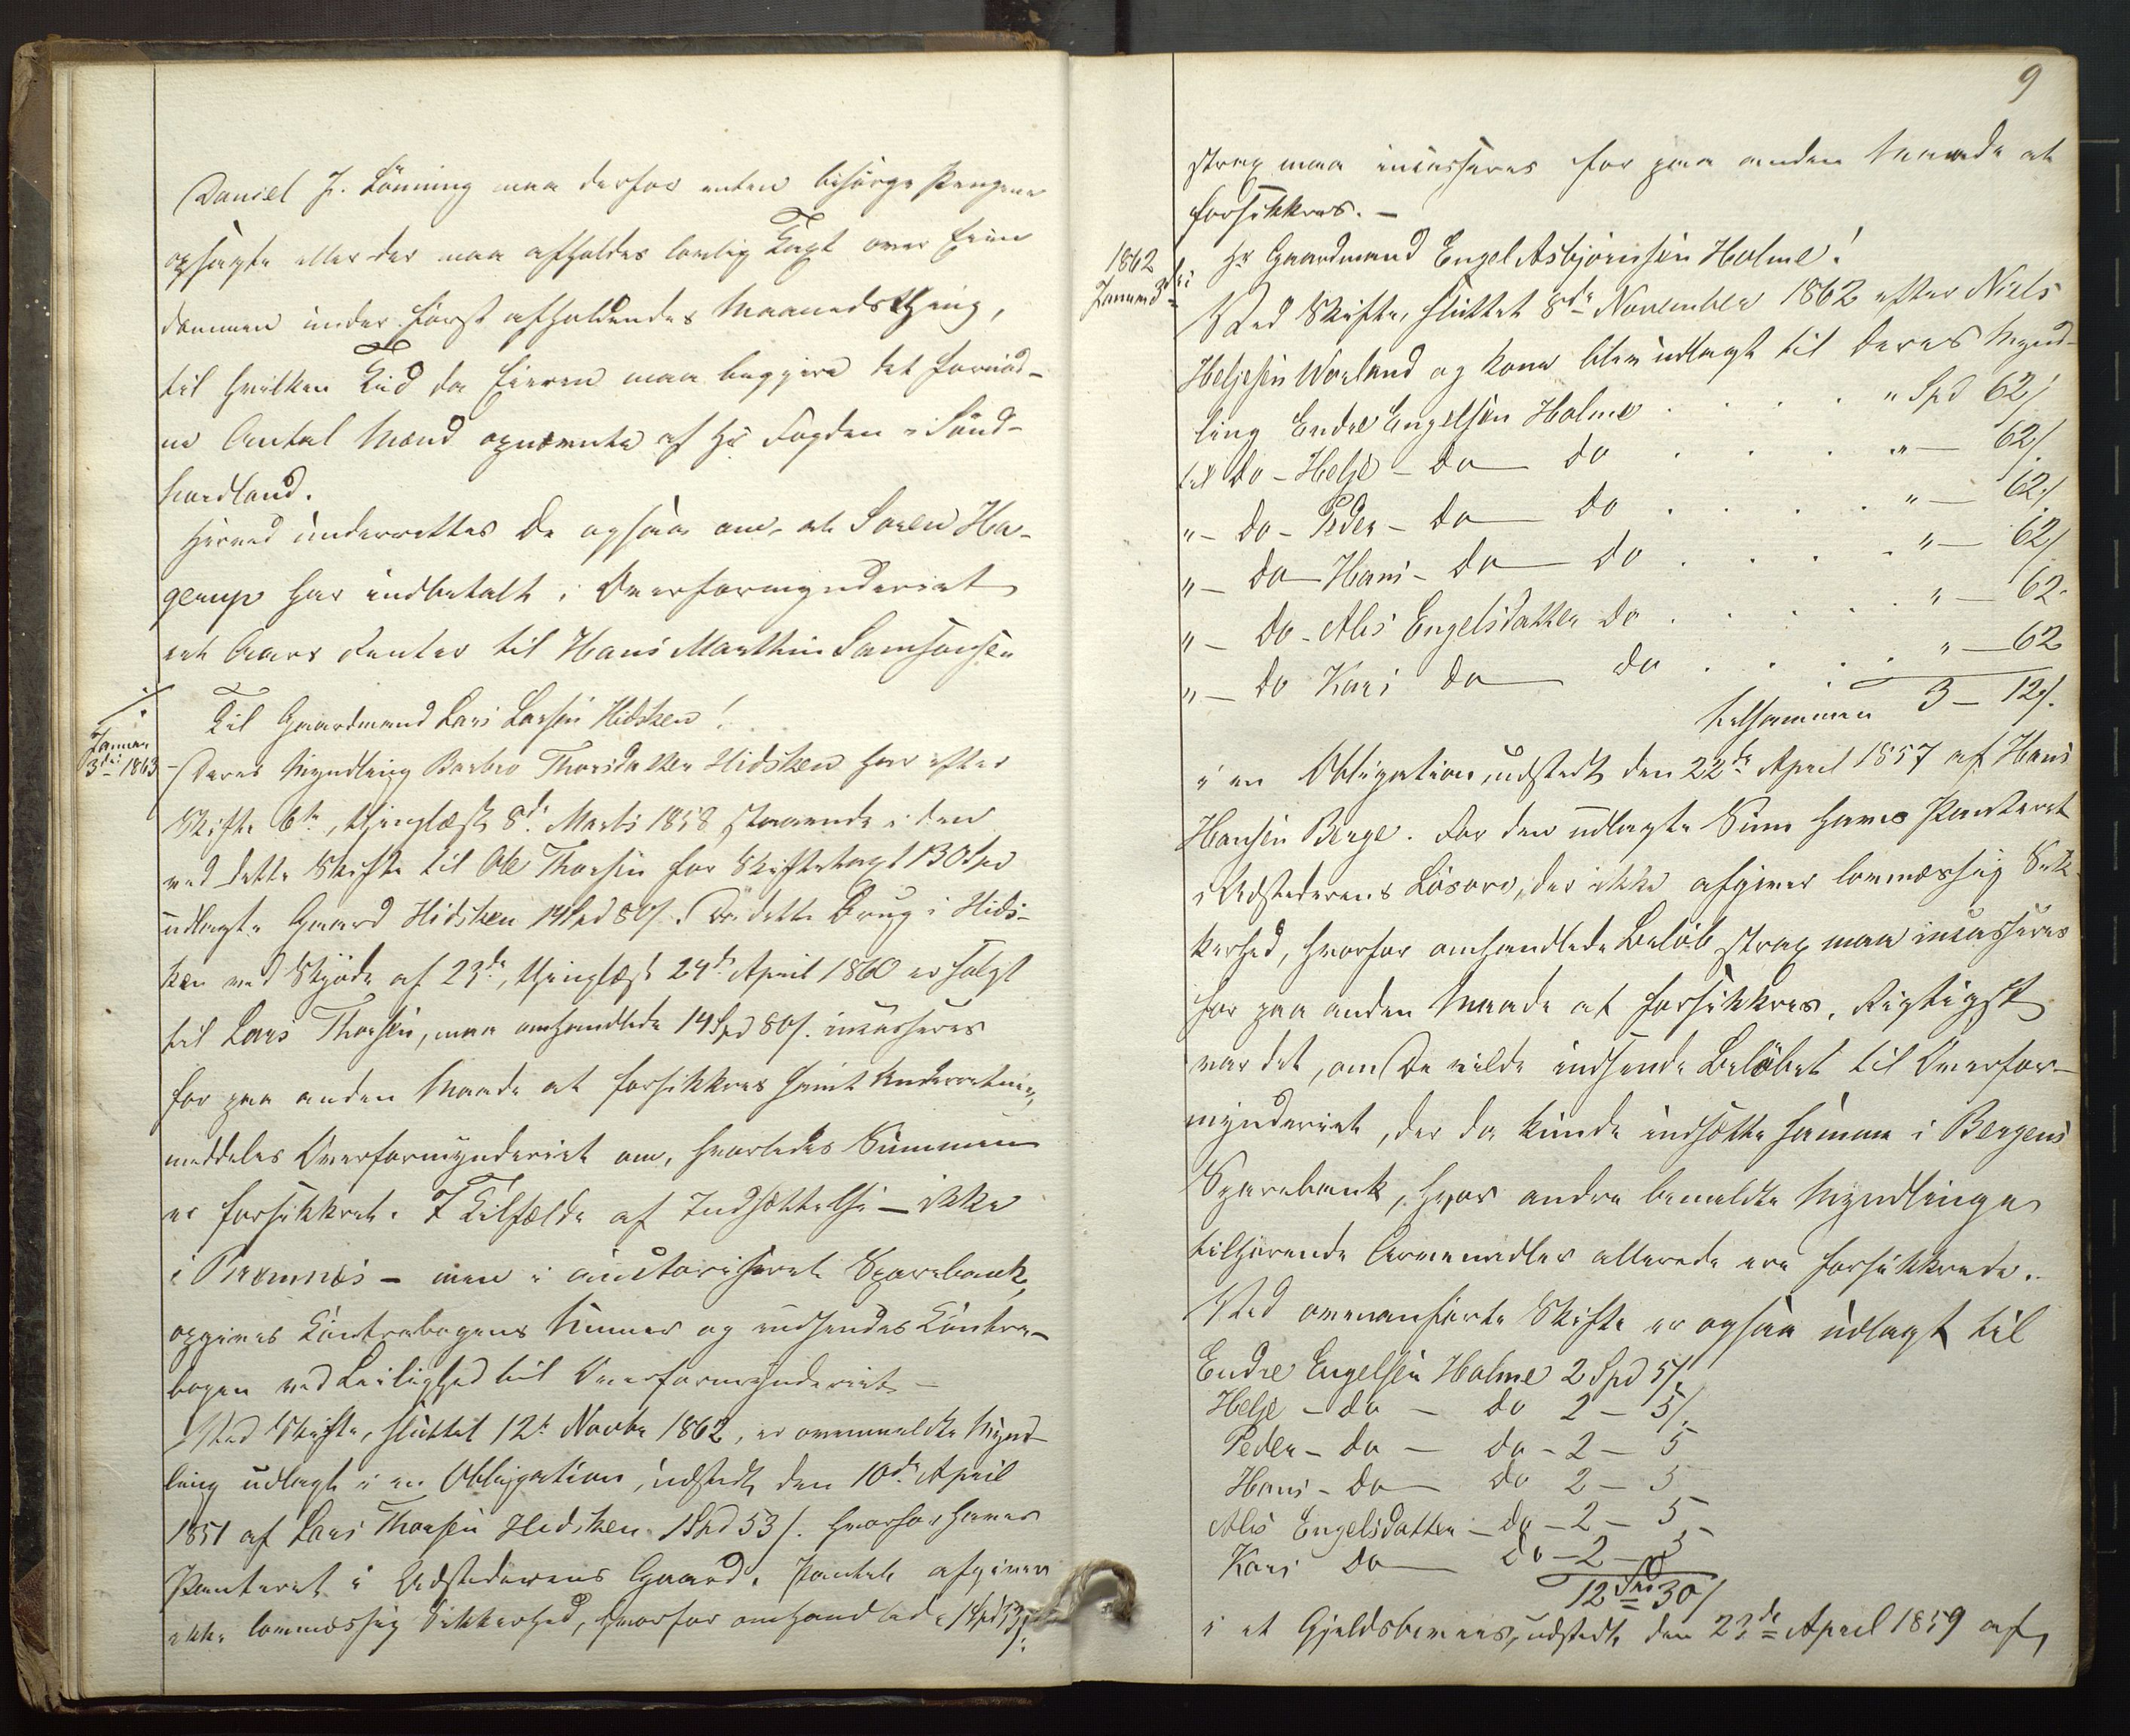 Daniel J. Lönning maa derfor enten besörge Pengene
opsagte eller der maa afholdes lovlig Taxt over Eien
dommen under först afholdendes Maanedsthing,
til hvilken Tid da Eieren maa begjære det fornöd-
ne Antal Mænd opnævnte af Hr Fogden i Sönd-
hordland.
Herved underrettes De ogsaa om, at Soren Ha-
gerup har indbetalt i Overformynderiet
et Aars Renter til Hans Marthin Samsonsen
Til Gaardmand Lars Larsen Hidsken!
Januar
3die 1863
Deres Myndling Barbro Thorsdatter Hidsken har efter
Skifte 6te, thinglæst 8de Marts 1858 staaende i den
ved dette Skifte til Ole Thorsen for Skiftetaxt 130 Spd
udlagte Gaard Hidsken 14 Spd 80 s. Da dette Brug i Hids-
ken ved Skjöde af 23de, thinglæst 24de April 1860 er solgt
til Lars Thorsen, maa omhandlede 14 Spd 80 s. incasseres
for paa anden Maade at forsikkres samt Underretning
meddeles Overformynderiet om, hvorledes Summen
er forsikkret. I Tilfælde af Indsættelse - ikke
i Bremnæs - men i auctoriseret Sparebank,
opgives Contrabogens Numer og indsendes Contra-
bogen ved Leilighed til Overformynderiet -
Ved Skifte, sluttet 12te Novbr 1862, er ovenmeldte Mynd-
ling udlagt i en Obligation, udstedt den 10de April
1851 af Lars Thorsen Hidsken 1 Spd 53 s. hvorfor haves
Panteret i Udstederens Gaard. Pantet afgiver
ikke lovmæssig Sikkerhed, hvorfor omhandlede 1 Spd 53 s.
9
strax maa incasseres for paa anden Maade at
forsikkres. -
1862
Januar 3die
Hr Gaardmand Engel Asbjörnsen Holme!
Ved Skifte, sluttet 8de November 1862 efter Niels
Heljesen Worland og Kone blev udlagt til Deres Mynd-
ling Endre Engelsen Holme . . . . " Spd 62 s
til Do - Helje - Do - Do . . . . " - 62 s
" - Do - Peder - Do - Do . . . . " - 62 s
" - Do - Hans - Do - Do . . . . " - 62 s
" - Do - Alis Engelsdatter Do . . . . " - 62.
" - Do Kari Do - Do . . . . " - 62
tilsammen 3 - 12 s.
i en Obligation, udstedt den 22de April 1857 af Hans
Hansen Berge. For den udlagte Sum haves Panteret
i Udstederens Lösöre, der ikke afgiver lovmæssig Sik-
kerhed, hvorfor omhandlede Belöb strax maa incasseres
for paa anden Maade at forsikkres. Rigtigst
var det, om De vilde indsende Belöbet til Overfor-
mynderiet, der da kunde indsætte samme i Bergens
Sparebank, hvor andre bemeldte Myndlinge
tilhörende Arvemidler allerede ere forsikkrede.
Ved ovenanförte Skifte er ogsaa udlagt til
Endre Engelsen Holme 2 Spd 5 s.
Helje - do - do 2 - 5 s.
Peder - do - do - 2 - 5
Hans - Do - do 2 - 5
Alis Engelsdatter - do - 2 - 5
Kari Do - do - 2 - 5
12 Spd 30 s
i et Gjeldsbeviis, udstedt den 23de April 1859 af